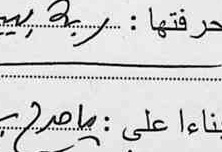 حرفتها : ربة بيـ
ـناءا على : ما صرح بـ